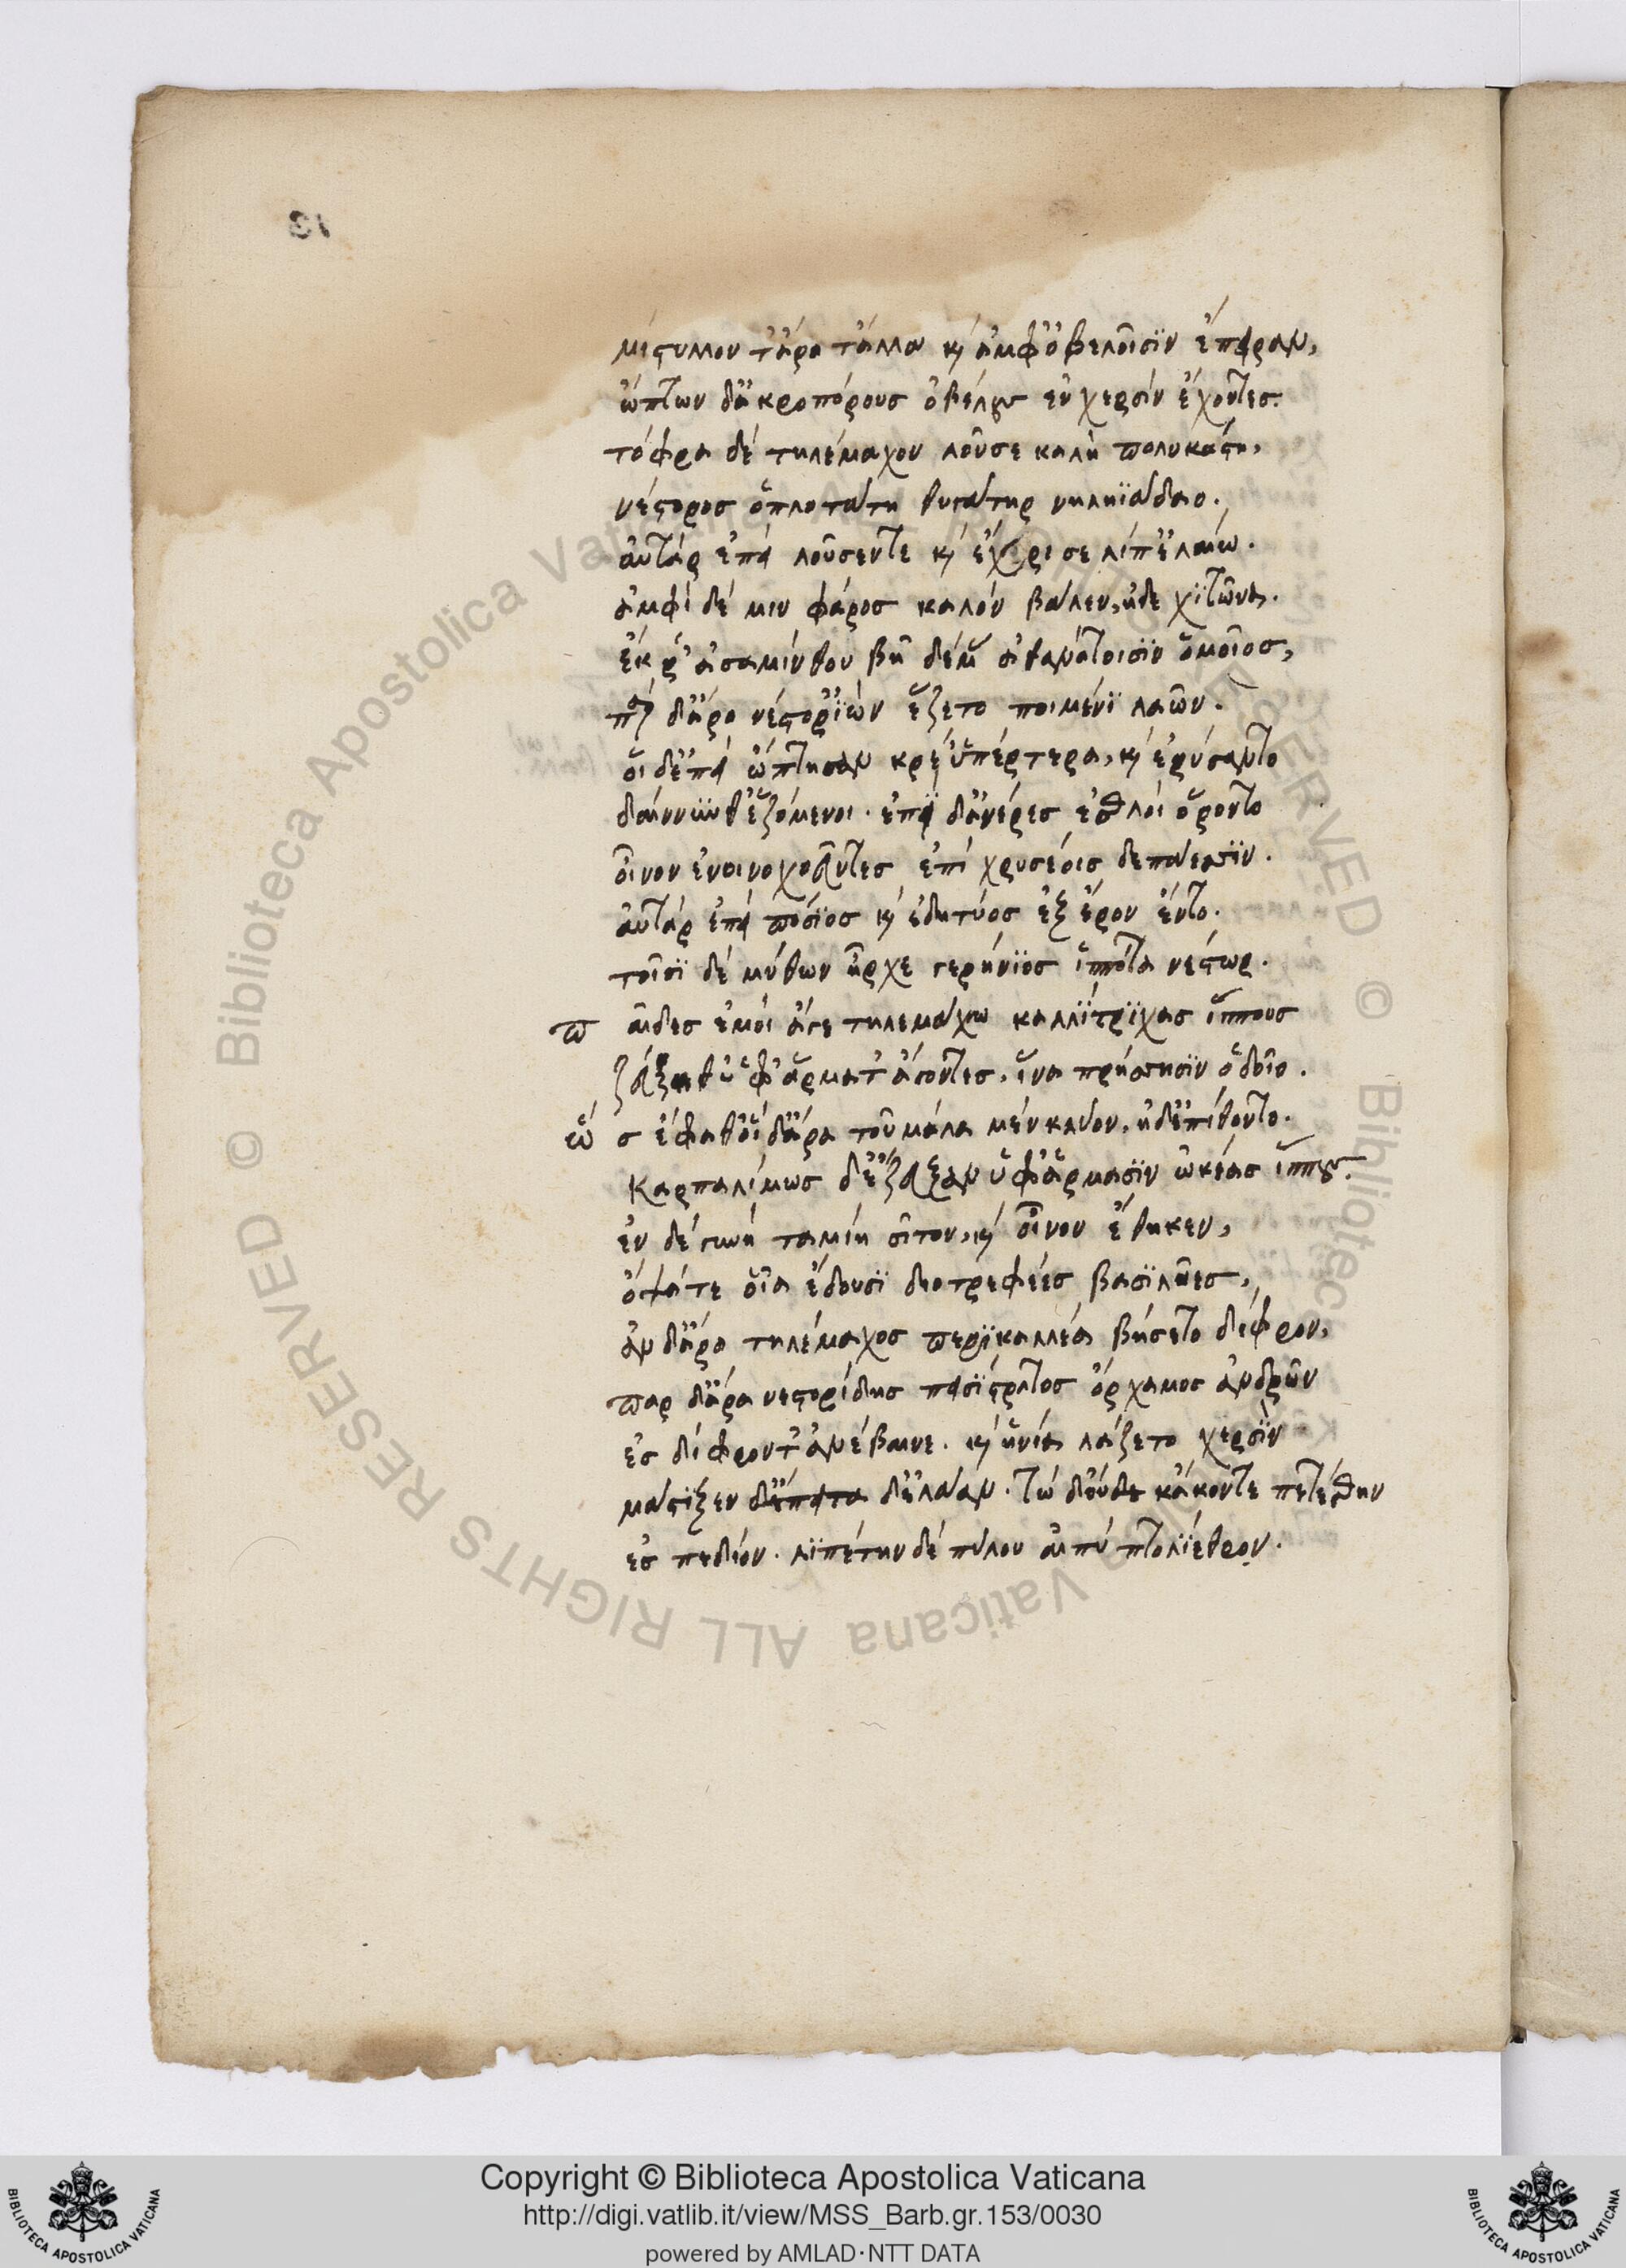 μίστυλλον τ᾽ ἄρα τἄλλα καὶ ἀμφ᾽ ὀβελοῖσϊν ἔπειραν,
ὤπτων δ᾽ ἀκροπόρους ὀβελοὺς ἐν χερσὶν ἔχοντες.
τόφρα δὲ τηλέμαχον λοῦσε καλὴ πολυκάστη,
νέστορος ὁπλοτάτη θυγάτηρ νηληϊάδαο.
αὐτὰρ ἐπεὶ λοῦσεν τε καὶ ἔχρισε λίπ᾽ ἐλαίω.
ἀμφὶ δέ μιν φάρος καλὸν βάλεν, ἠδὲ χϊτῶνα.
ἐκ ῥ᾽ ἀσαμίνθου βῆ δέμας ἀθανάτοισϊν ὁμοῖος,
πὰρ δ᾽ ἄρα νέστορ᾽ ἰὼν ἕζετο ποιμένϊ λαῶν.
οἱ δ᾽ ἐπεὶ ὤπτησαν κρέ᾽ ὑπέρτερα, καὶ ἐρύσαντο
δαίνυνθ᾽ ἑζόμενοι. ἐπεὶ δ᾽ ἀνέρες ἐσθλοὶ ὄροντο
οἶνον ἐνοινοχοεῦντες ἐπὶ χρυσέοις δεπάεσσϊν.
αὐτὰρ ἐπεὶ πόσϊος καὶ ἐδητύος ἐξ ἔρον ἕντο.
τοῖσϊ δὲ μύθων ἦρχε γερήνϊος ἱππότα νέστωρ.
παῖδες ἐμοὶ ἄγε τηλεμάχω καλλίτρϊχας ἵππους
ζεύξαθ᾽ ὑφ᾽ ἅρματ᾽ ἄγοντες, ἵνα πρήσσησϊν ὁδοῖο.
ὣς ἔφαθ᾽ οἱ δ᾽ ἄρα τοῦ μάλα μὲν κλύον, ἠδ᾽ ἐπίθοντο.
Καρπαλίμως δ᾽ ἔζευξαν ὑφ᾽ ἅρμασϊν ὠκέας ἵππους.
ἐν δὲ γυνὴ ταμίη σῖτον, καὶ οἶνον ἔθηκεν,
ὄψά τε οἷα ἔδουσϊ διοτρεφέες βασϊλῆες,
ἂν δ᾽ ἄρα τηλέμαχος περϊκαλλέα βήσετο δίφρον,
πὰρ δ᾽ ἄρα νεστορίδης πεισίστρατος ὄρχαμος ἀνδρῶν
ἐς δίφρον τ᾽ ἀνέβαινε. καὶ ἡνία λάζετο χερσὶν
μάστϊξεν δ᾽ ἔπειτα δ᾽ ἐλάαν. τὼ δ᾽ οὐδε κ᾽ ἄκοντε πετέσθην
ἐς πεδίον. λϊπέτην δὲ πύλου αἰπὺ πτολίεθρον.
Copyright © Biblioteca Apostolica Vaticana
http://digi.vatlib.it/view/MSS_Barb.gr.153/0030
powered by AMLAD·NTT DATA